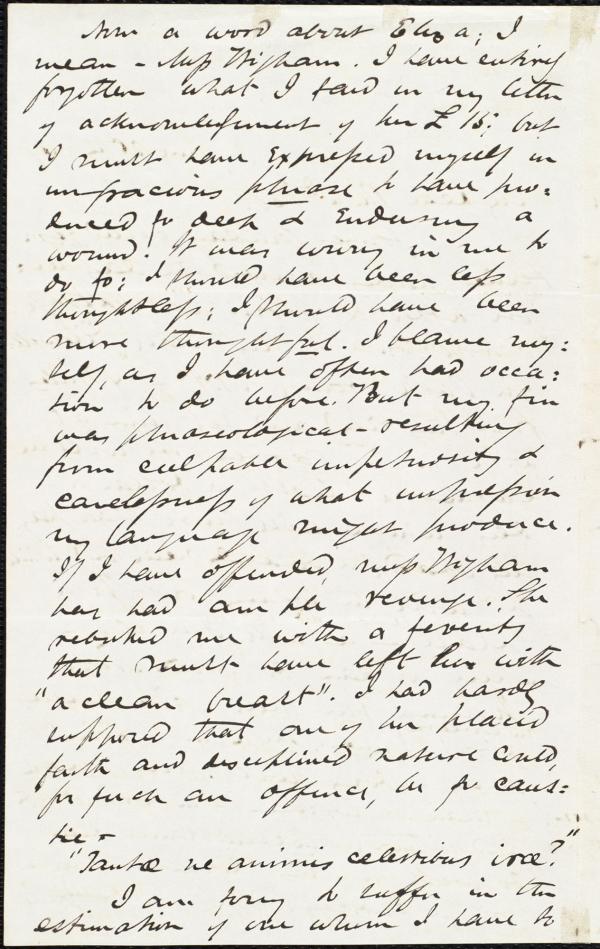 Now a word about Eliza; I
mean - Miss Wigham. I have entirely
forgotten what I said in my letter
of acknowledgement of her £15; but
I must have expressed myself in
ungracious phrase to have pro=
duced so deep & enduring a
wound! It was wrong in me to
do so; I should have been less
thoughtless; I should have been
more thoughtful. I blame my=
self, as I have often had occa=
sion to do before. But my sin
was phraseological - resulting
from culpable impetuosity &
carelessness of what impression
my language might produce.
If I have offended, Miss Wigham
has had ample revenge. She
rebuked me with a severity
that must have left her with
"a clean breast". I had hardly
supposed that one of her placid
faith and disciplined nature could,
for such an offence, be so caus=
tic -
"Tantæ ne animis celestibus iræ?"
I am sorry to suffer in the
estimation of one whom I have so